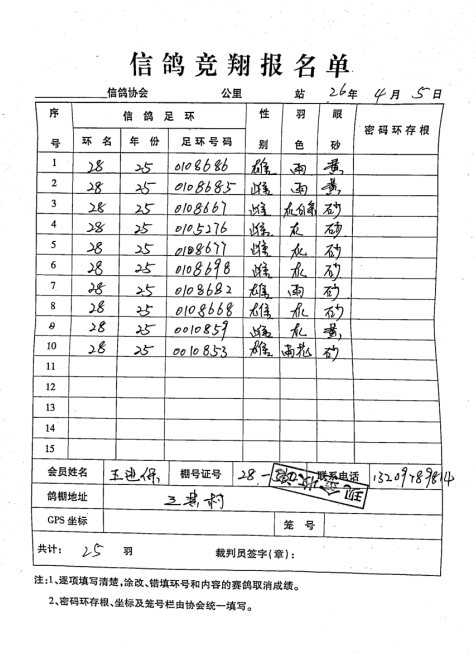 信鸽竞翔报名单
信鸽协会 公里 站 26年 4月 5日
序号 信鸽足环 性别 羽色 眼砂 密码环存根
环名 年份 足环号码
1 28 25 0108686 雄 雨 黄
2 28 25 0108685 雌 雨 黄
3 28 25 0108667 雌 灰白条 砂
4 28 25 0105276 雌 灰 砂
5 28 25 0108677 雌 灰 砂
6 28 25 0108698 雌 灰 砂
7 28 25 0108682 雄 雨 砂
8 28 25 0108668 雄 灰 砂
9 28 25 0010859 雌 灰 黄
10 28 25 0010853 雄 雨花 砂
11
12
13
14
15
会员姓名 王 保 棚号证号 28- 联系电话 13209789814
鸽棚地址 王 村
GPS坐标 笼号
共计: 25 羽 裁判员签字(章):
注:1、逐项填写清楚,涂改、错填环号和内容的赛鸽取消成绩。
2、密码环存根、坐标及笼号栏由协会统一填写。